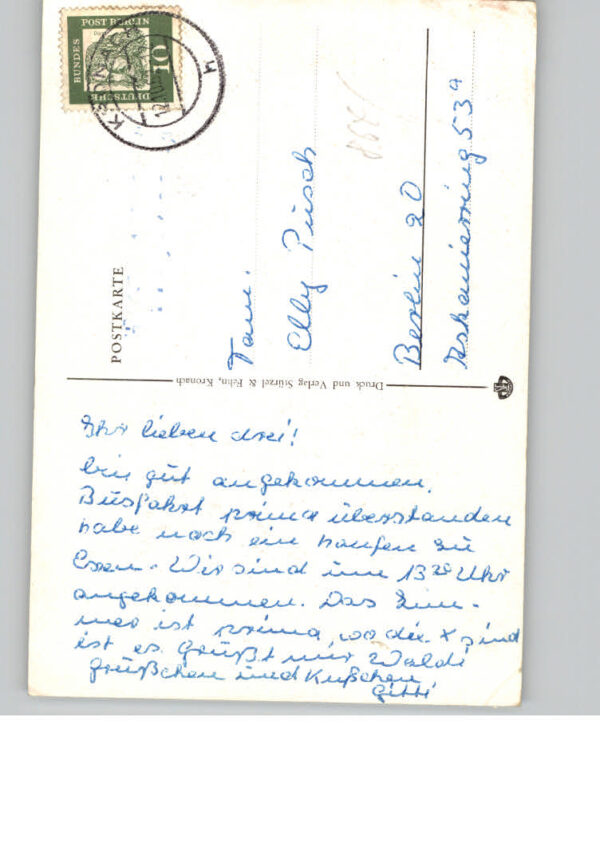 Ihr lieben drei!
bin gut angekommen.
Busfahrt prima überstanden
habe noch ein haufen zu
Essen. Wir sind um 13 20 Uhr
angekommen. Das Zim-
mer ist prima, wo die x sind
ist es. Grüßt mir Waldi
Grüßchen und Küßchen
Gitti
POSTKARTE
Fam.
Elly Püsch
Berlin 20
53a
Druck und Verlag Stürzel & Fehn, Kronach
DEUTSCHE BUNDESPOST BERLIN
10